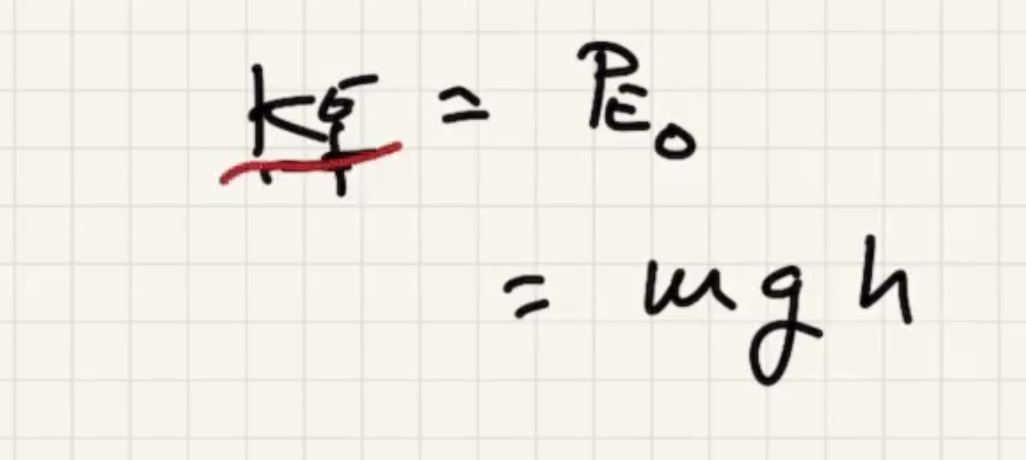 KE_f = PE_0
= mgh